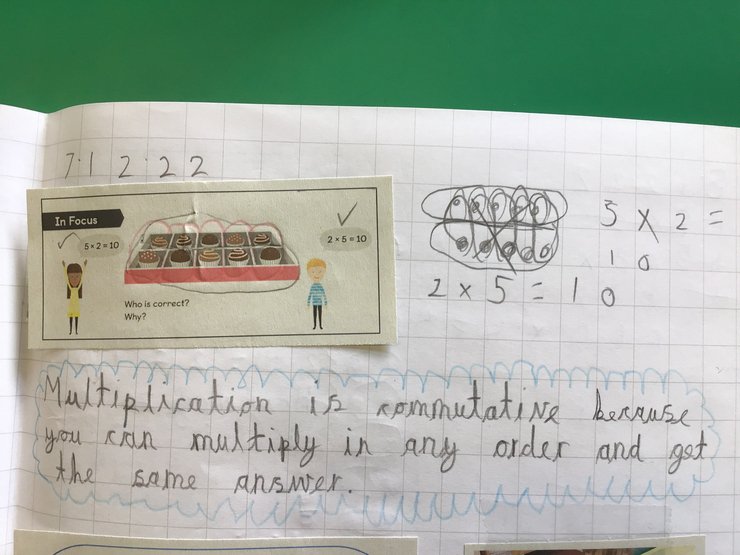 7.12.22
In Focus
5 × 2 = 10
2 × 5 = 10
Who is correct?
Why?
5 × 2 =
10
2 × 5 = 10
Multiplication is commutative because
you can multiply in any order and get
the same answer.